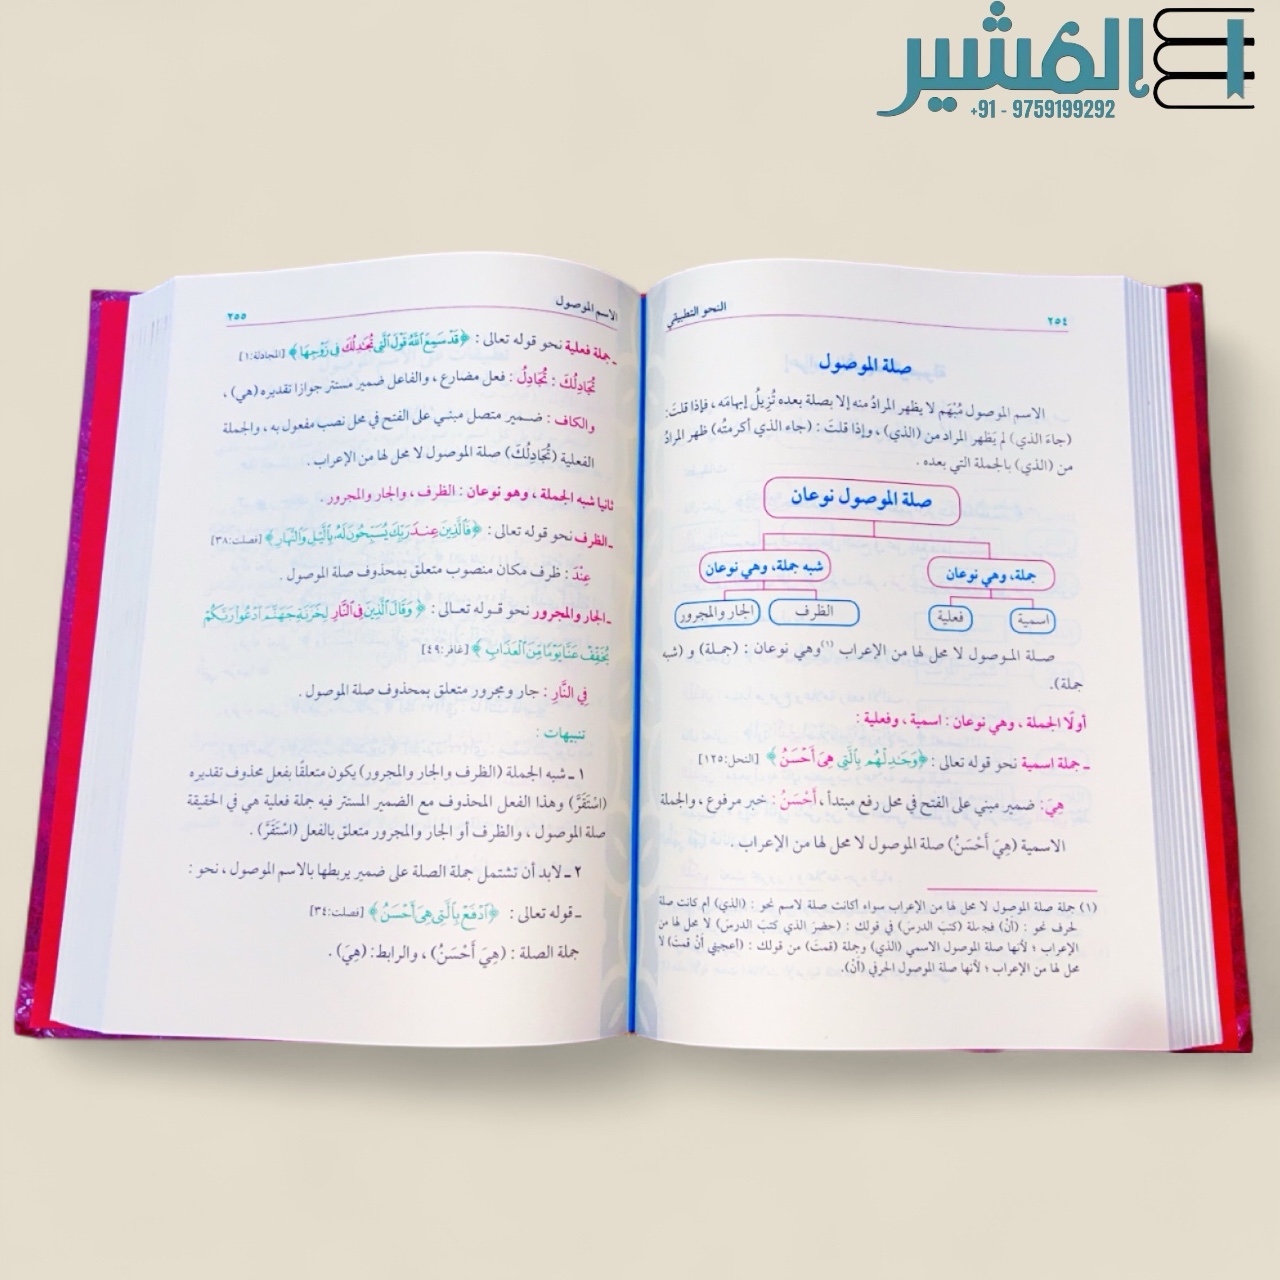 المشير
+91 - 9759199292
٢٥٤
النحو التطبيقي
صلة الموصول
الاسم الموصول مُبْهَم لا يظهر المرادُ منه إلا بصلة بعده تُزِيلُ إبهامَه ، فإذا قلتَ :
(جاءَ الذي) لم يَظهر المراد من (الذي) ، وإذا قلتَ : (جاء الذي أكرمتُه) ظهر المرادُ
من (الذي) بالجملة التي بعده .
صلة الموصول نوعان
جملة، وهي نوعان
شبه جملة، وهي نوعان
اسمية
فعلية
الظرف
الجار والمجرور
صلة الموصول لا محل لها من الإعراب (١) وهي نوعان : (جملة) و (شبه
جملة).
أولًا الجملة ، وهي نوعان : اسمية ، وفعلية :
ـ جملة اسمية نحو قوله تعالى : ﴿وَجَٰدِلْهُم بِٱلَّتِي هِيَ أَحْسَنُ﴾ [النحل:١٢٥]
هِيَ: ضمير مبني على الفتح في محل رفع مبتدأ ، أَحْسَنُ : خبر مرفوع ، والجملة
الاسمية (هِيَ أَحْسَنُ) صلة الموصول لا محل لها من الإعراب .
(١) جملة صلة الموصول لا محل لها من الإعراب سواء أكانت صلة لاسم نحو : (الذي) أم كانت صلة
لحرف نحو : (أَنْ) فجملة (كتبَ الدرسَ) في قولك : (حضرَ الذي كتبَ الدرسَ) لا محل لها من
الإعراب ؛ لأنها صلة الموصول الاسمي (الذي) وجملة (قمتَ) من قولك : (أعجبني أَنْ قمتَ) لا
محل لها من الإعراب ؛ لأنها صلة الموصول الحرفي (أَنْ).
الاسم الموصول
٢٥٥
ـ جملة فعلية نحو قوله تعالى : ﴿قَدْ سَمِعَ ٱللَّهُ قَوْلَ ٱلَّتِي تُجَٰدِلُكَ فِي زَوْجِهَا﴾ [المجادلة:١]
تُجَادِلُكَ : تُجَادِلُ : فعل مضارع ، والفاعل ضمير مستتر جوازا تقديره (هي) ،
والكاف : ضمير متصل مبني على الفتح في محل نصب مفعول به ، والجملة
الفعلية (تُجَادِلُكَ) صلة الموصول لا محل لها من الإعراب .
ثانيا شبه الجملة ، وهو نوعان : الظرف ، والجار والمجرور .
ـ الظرف نحو قوله تعالى : ﴿فَٱلَّذِينَ عِندَ رَبِّكَ يُسَبِّحُونَ لَهُۥ بِٱلَّيْلِ وَٱلنَّهَارِ﴾ [فصلت:٣٨]
عِنْدَ : ظرف مكان منصوب متعلق بمحذوف صلة الموصول .
ـ الجار والمجرور نحو قوله تعالى : ﴿وَقَالَ ٱلَّذِينَ فِي ٱلنَّارِ لِخَزَنَةِ جَهَنَّمَ ٱدْعُوا۟ رَبَّكُمْ
يُخَفِّفْ عَنَّا يَوْمًا مِّنَ ٱلْعَذَابِ﴾ [غافر:٤٩]
فِي النَّارِ : جار ومجرور متعلق بمحذوف صلة الموصول .
تنبيهات :
١ ـ شبه الجملة (الظرف والجار والمجرور) يكون متعلقًا بفعل محذوف تقديره
(اسْتَقَرَّ) وهذا الفعل المحذوف مع الضمير المستتر فيه جملة فعلية هي في الحقيقة
صلة الموصول ، والظرف أو الجار والمجرور متعلق بالفعل (اسْتَقَرَّ) .
٢ ـ لابد أن تشتمل جملة الصلة على ضمير يربطها بالاسم الموصول ، نحو :
ـ قوله تعالى : ﴿ٱدْفَعْ بِٱلَّتِي هِيَ أَحْسَنُ﴾ [فصلت:٣٤]
جملة الصلة : (هِيَ أَحْسَنُ) ، والرابط: (هِيَ) .